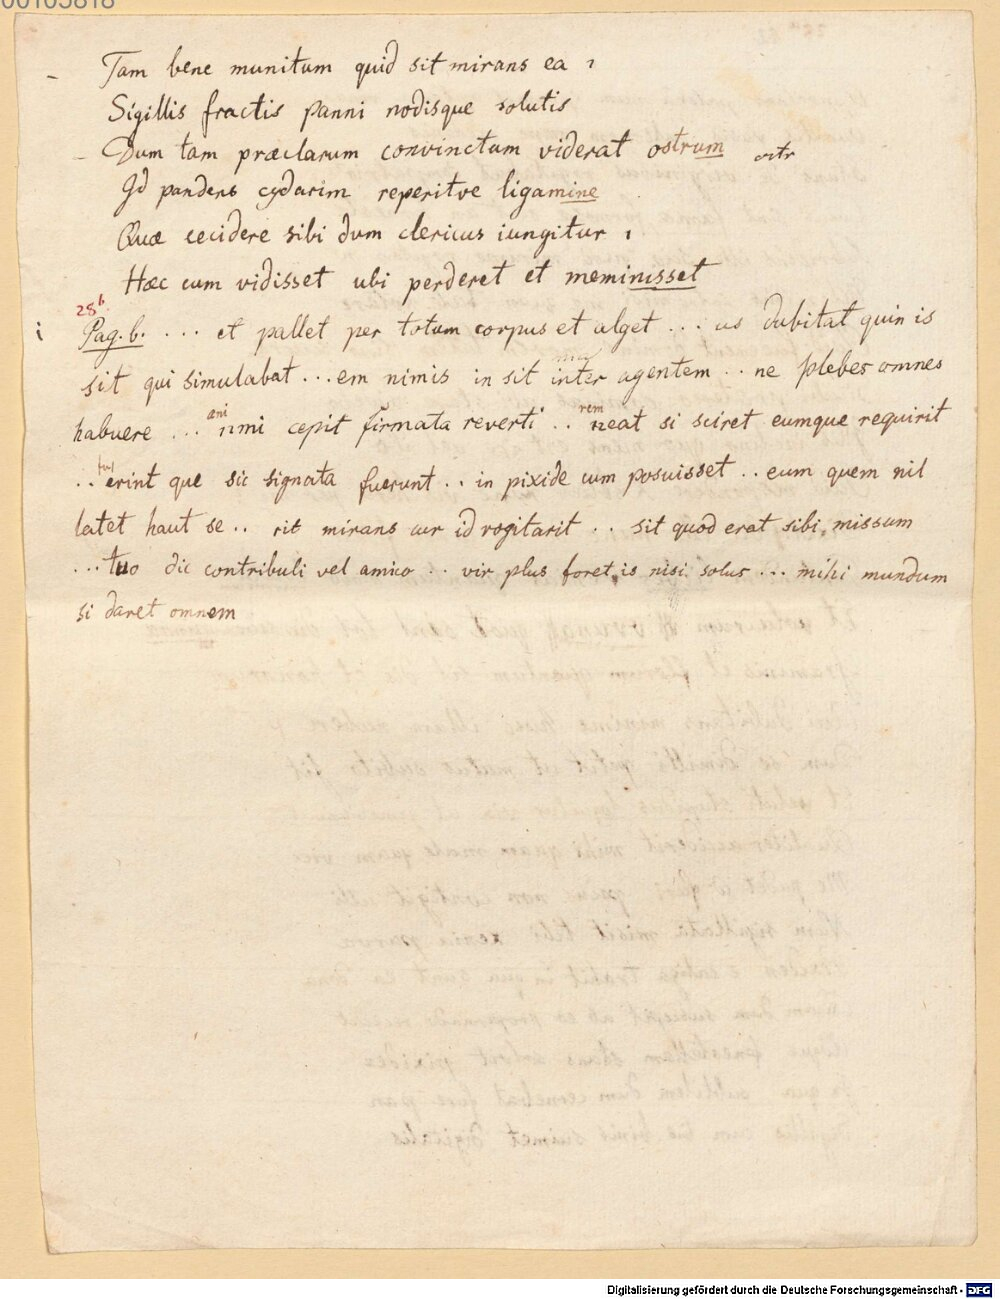 00105818
Tam bene munitum quid sit mirans ea ?
Sigillis fractis panni nodisque solutis
Dum tam præclarum convinctum viderat ostrum ostr
Id pandens cydarim reperitve ligamine
Quæ cecidere sibi dum clericus iungitur ,
Hæc cum vidisset ubi perderet et meminisset
28b.
Pag. b. . . . et pallet per totum corpus et alget . . . us dubitat quin is
sit qui simulabat . . . em nimis in sit inter agentem . . ne plebes omnes
ani rem
habuere . . . nmi cepit firmata reverti . . neat si sciret eumque requirit
. . erint que sic signata fuerunt . . in pixide cum posuisset . . eum quem nil
latet haut se . . rit mirans cur id rogitarit . . sit quod erat sibi missum
. . . tuo dic contribuli vel amico . . vir plus foret is nisi solus . . . mihi mundum
si daret omnem
Digitalisierung gefördert durch die Deutsche Forschungsgemeinschaft - DFG